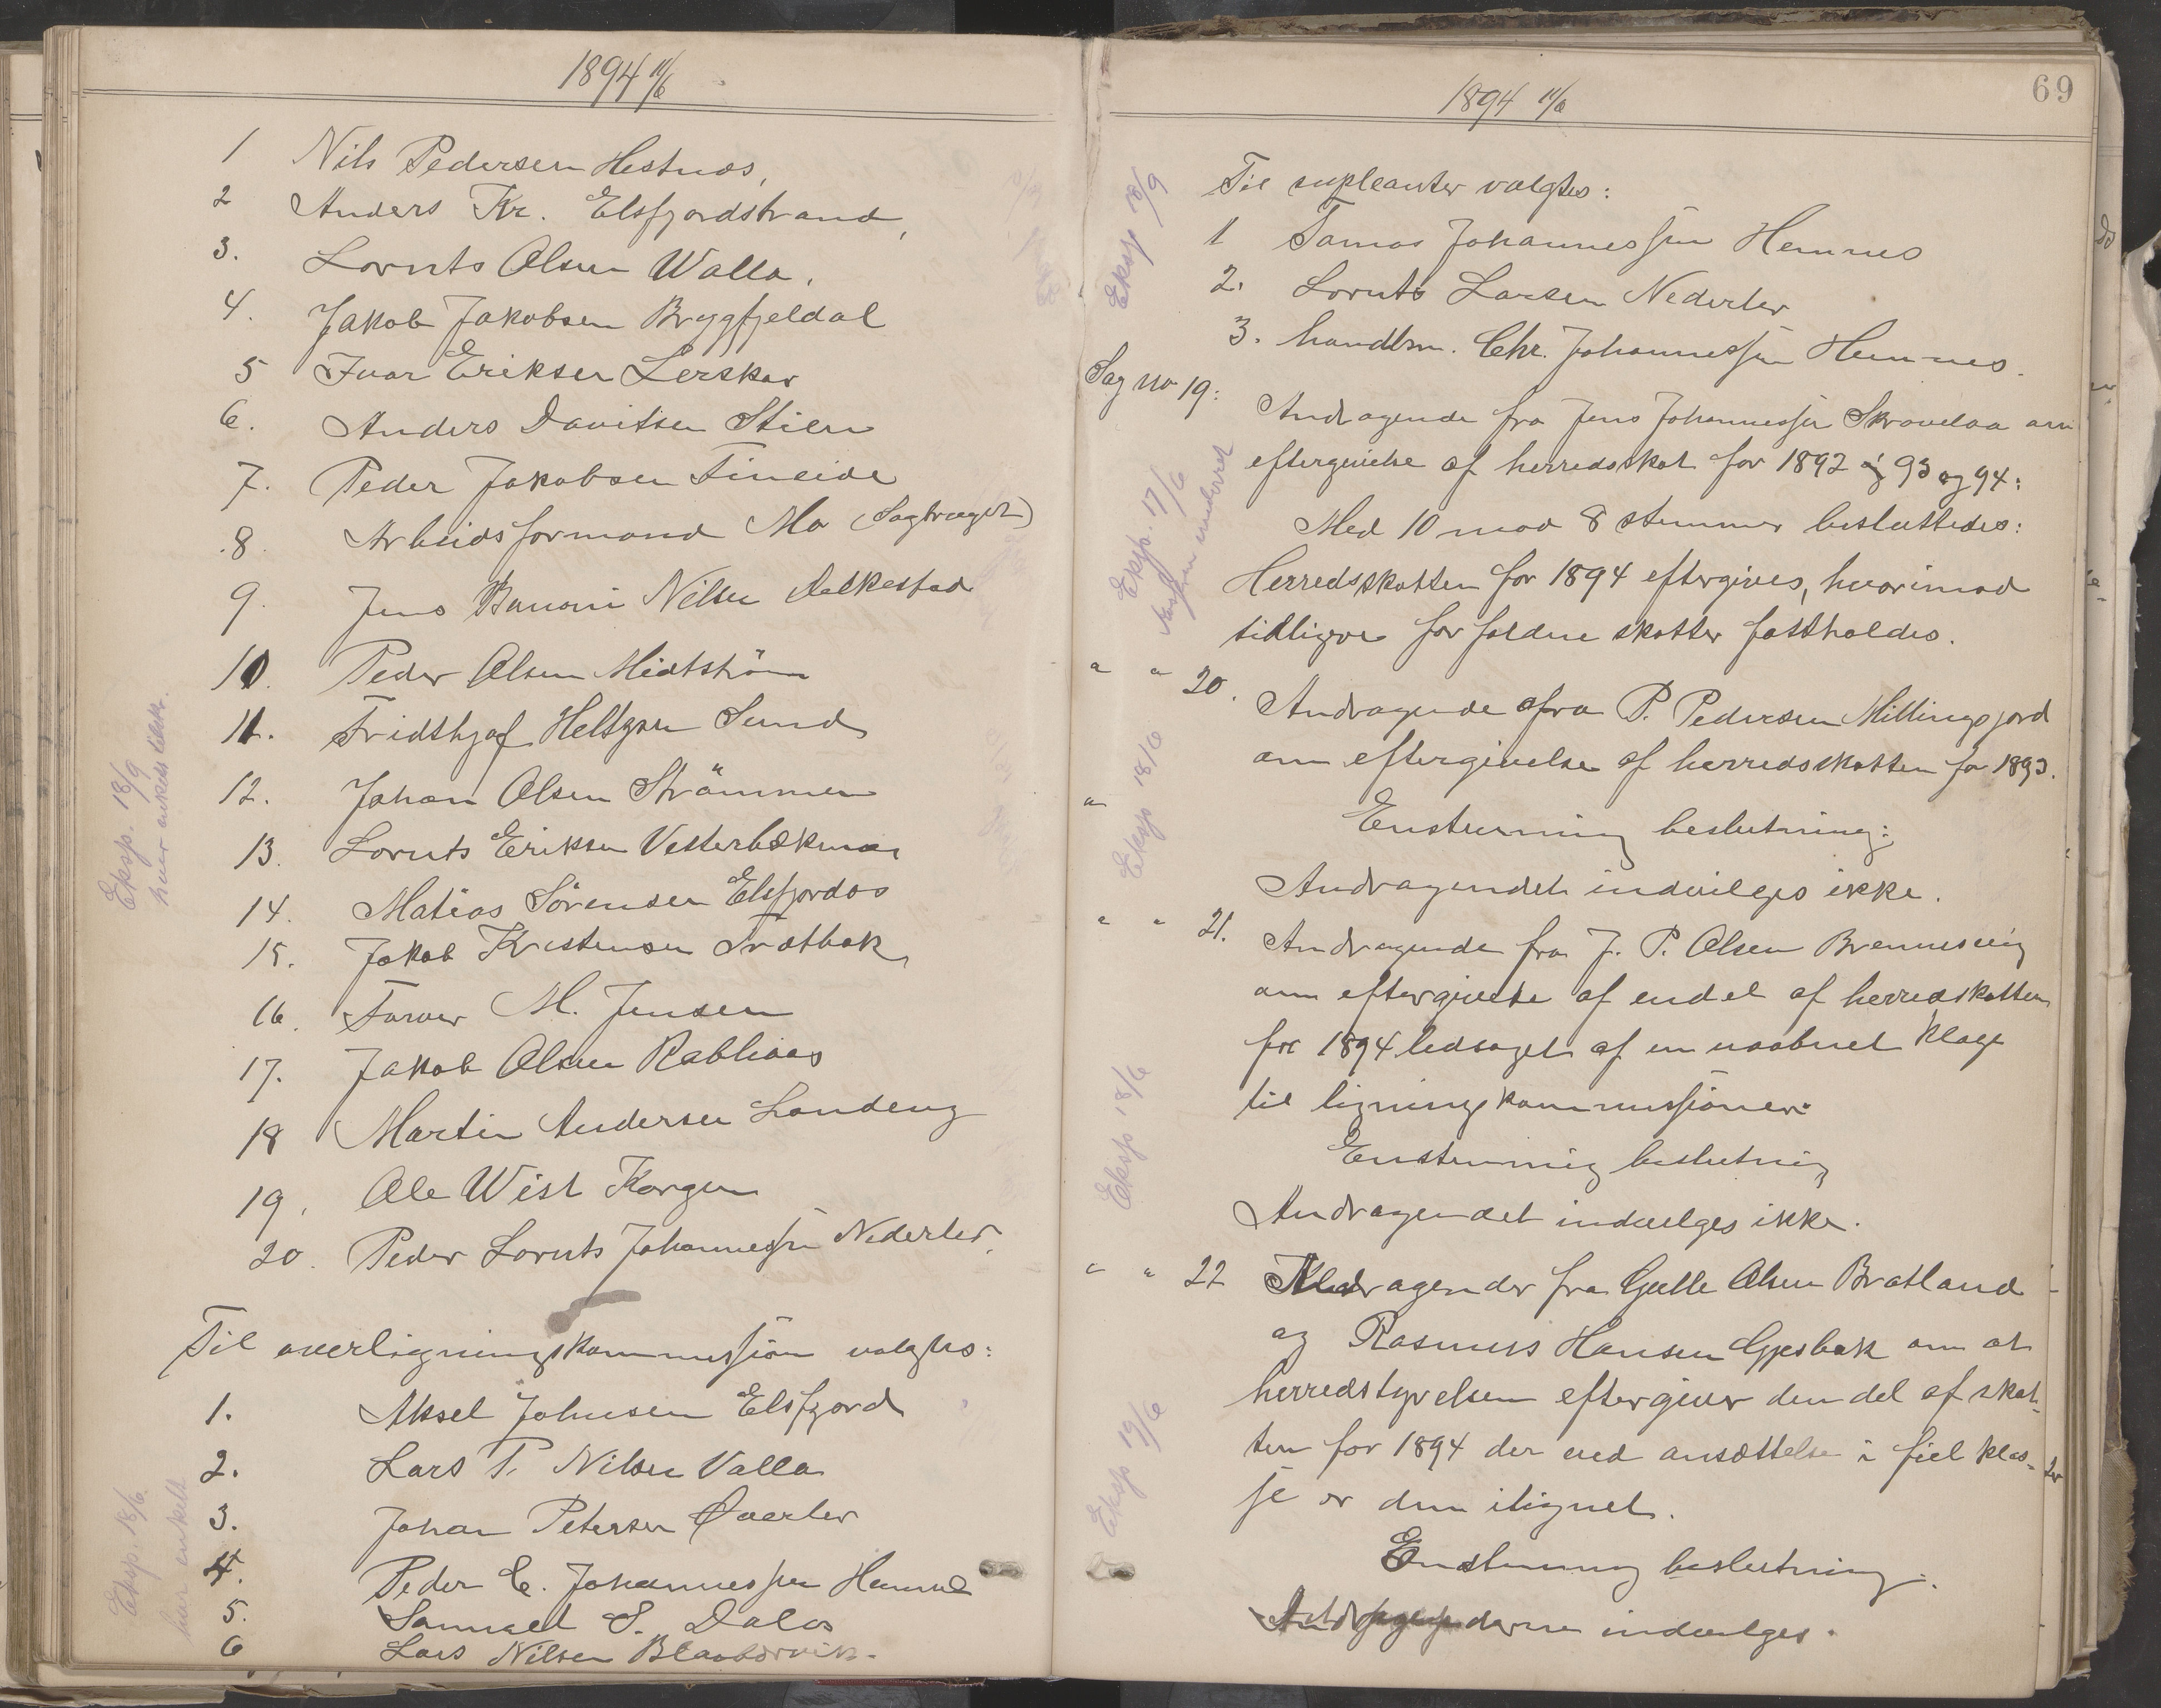 1894 11/6
1 Nils Pedersen Hestnes,
2 Anders Kr. Elsfjordstrand,
3. Lornts Olsen Walla.
4. Jakob Jakobsen Bryggfjeldal
5 Ivar Eriksen Lerskar
6. Anders Davitsen Stien
7. Peder Jakobsen Fineide
8. Arbeidsformand Mo (Sagbruget)
9. Jens Benoni Nilsen
10. Peder Olsen Midtström
11. Fridthjof Heltzen Sund
12. Johan Olsen Strömmen
13. Lornts Eriksen Vesterbækmoe
14. Matias Sörensen Elsfjordos
15. Jakob Kristensen Trætbak
16. Farver M. Jensen
17. Jakob Olsen Rabliaas
18 Martin Andersen Landeng
19. Ole Wist Korgen
20. Peder Lornts Johannessen Nederler.
Til overligningskommission valgtes:
1. Aksel Johnsen Elsfjord
2. Lars P. Nilsen Valla
3. Johan Petersen Øverler
4. Peder C. Johannessen Hemnes
5. Samuel S. Dalos
6 Lars Nilsen Blaabærvik.
Eksp. 18/9
hver enkelt tilsk.
Eksp. 18/6.
hver enkelt
1894 11/6
69
Til supleanter valgtes:
1 Tomas Johannessen Hemnes
2. Lornts Larsen Nederler
3. handlsm. Chr. Johannessen Hemnes.
Eksp 18/9
Sag no 19: Andragende fra Jens Johannessen Skravelaa om
eftergivelse af herredsskat for 1892 og 93 og 94:
Med 10 mod 8 stemmer besluttedes:
Herredsskatten for 1894 eftergives, hvorimod
tidligere forfaldne skatter fastholdes.
Eksp. 17/6
underret
" " 20. Andragende fra P. Pedersen Millingsjord
om eftergivelse af herredsskatten for 1893.
" Enstemmig beslutning:
Andragendet indvilges ikke.
Eksp 18/6
" " 21. Andragende fra J. P. Olsen Brennesvig
om eftergivelse af endel af herredsskatten
for 1894 ledsaget af en uaabnet klage
til ligningskommissionen:
Enstemmig beslutning
Andragendet indvilges ikke.
Eksp 18/6
" " 22 Andragender fra Gulle Olsen Bratland
og Rasmus Hansen Gjesbak om at
herredstyrelsen eftergiver den del af skat-
ten for 1894 der ved ansættelse i feil klas-
se er dem ilignet.
Enstemmig beslutning:
Andragenderne indvilges.
Eksp 19/6